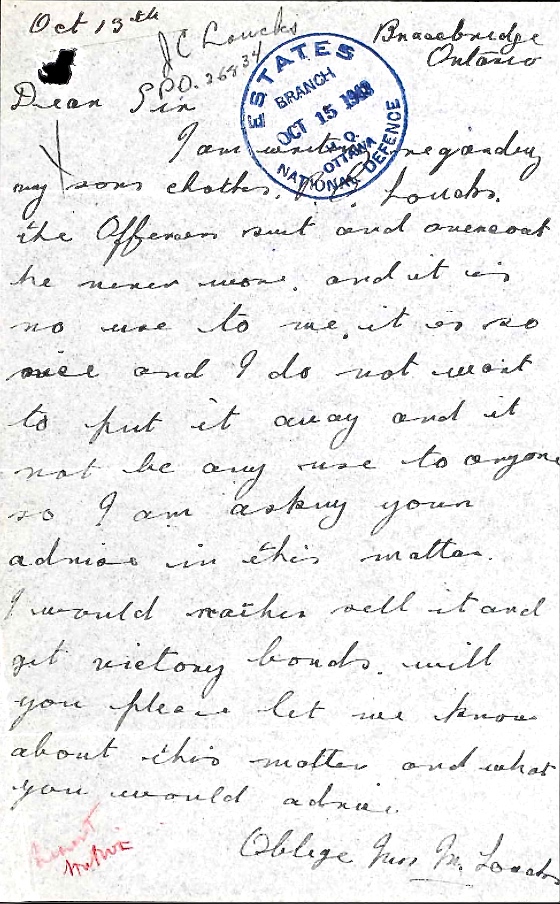 Oct 13th
J C Loucks
P.O. 26834
Bracebridge
Ontario
ESTATES
BRANCH
OCT 15 1943
H.Q.
OTTAWA
NATIONAL DEFENCE
Dear Sir
I am writing regarding
my sons clothes. Loucks.
the Officers suit and overcoat
he never wore. and it is
no use to me. it is so
nice and I do not want
to put it away and it
not be any use to anyone
so I am asking your
advise in this matter.
I would rather sell it and
get victory bonds. will
you please let me know
about this matter and what
you would advise.
Oblige Mrs M. Loucks